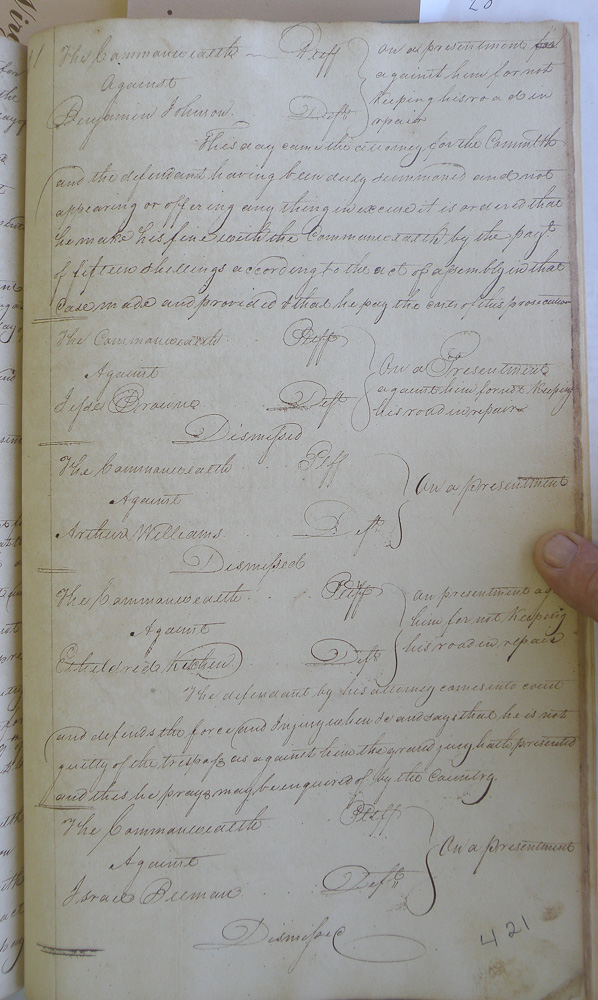 The Commonwealth Pltff
on a presentment for
against him for not
keeping his road in
repair
Against
Benjamin Johnson. Deft
This day came the attorney for the Commlth
and the defendant having been duly summoned and not
appearing or offering any thing in excuse it is ordered that
he make his fine with the Commonwealth by the paymt.
of fifteen shillings according to the act of assembly in that
Case made and provided & that he pay the costs of this prosecution
The Commonwealth Pltff
Against
Jesse Browne Deft
On a Presentment
against him for not Keeping
his road in repair
Dismissed
The Commonwealth Pltff
Against
Arthur Williams Deft.
On a presentment
Dismissed
The Commonwealth Pltff
Against
Etheldred Kitchen Deft.
on presentment ag
him for not Keeping
his road in repair
The defendant by his attorney comes into court
and defends the force and Injury when &c and says that he is not
guilty of the trespass as against him the grand jury hath presented
and this he prays may be enquired of by the Country
The Commonwealth Pltff
Against
Israel Beeman Deft.
On a presentment
Dismissed
421